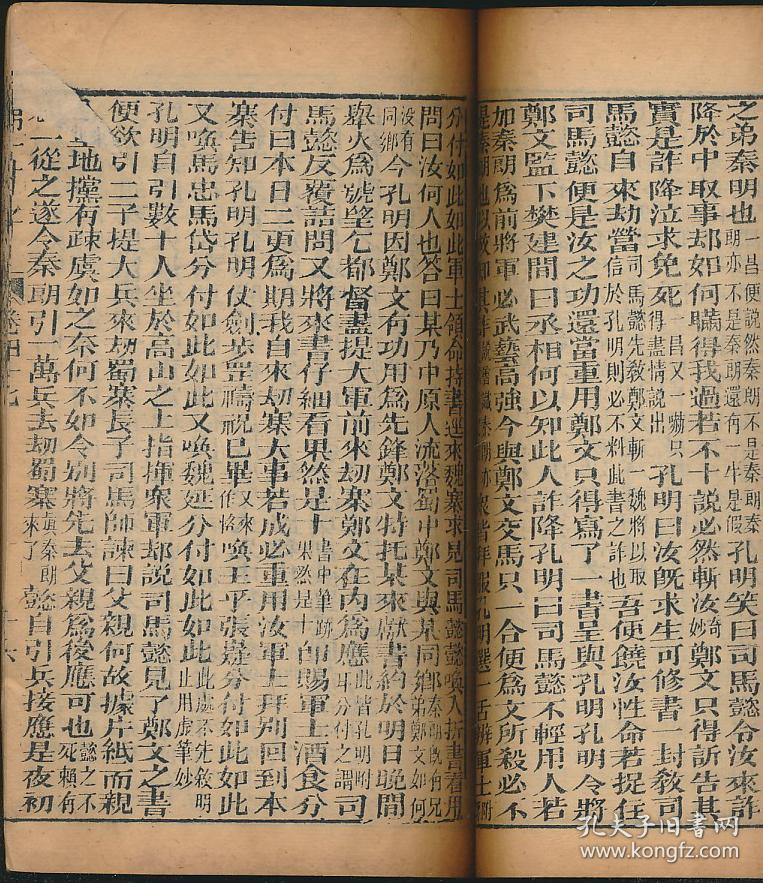 之弟秦明也一昌便説然秦朗不是秦明朗亦不是秦朗還有一半是假孔明笑曰司馬懿令汝來詐
降於中取事却如何瞞得我過若不十説必然斬汝妙奇鄭文只得訴告其
實是詐降泣求免死昌又一嚇只得盡情説出孔明曰汝既求生可修書一封敎司
馬懿自來劫營司馬懿先敎鄭文斬一魏將以取信於孔明則必不料此書之詐也吾便饒汝性命若捉住
司馬懿便是汝之功還當重用鄭文只得寫了一書呈與孔明孔明令將
鄭文監下樊建問曰丞相何以知此人詐降孔明曰司馬懿不輕用人若
加秦朗爲前將軍必武藝高強今與鄭文交馬只一合便爲文所殺必不
是秦朗也以故知其詐衆皆拜服孔明選一舌辨軍士附
分付如此如此軍士領命持書逕來魏寨求見司馬懿懿喚入拆書看畢
問曰汝何人也答曰某乃中原人流落蜀中鄭文與某同鄉秦朗既有兄弟鄭文如何
没有同鄉今孔明因鄭文有功用爲先鋒鄭文特托某來獻書約於明日晚間
舉火爲號望乞都督盡提大軍前來劫寨鄭文在内爲應此皆孔明附耳分付之謂司
馬懿反覆詰問又將來書仔細看果然是十書中筆跡果然是十卽賜軍士酒食分
付曰本日二更爲期我自來劫寨大事若成必重用汝軍士拜别回到本
寨告知孔明孔明仗劍步罡禱祝已畢又來作怪喚王平張嶷分付如此如此
又喚馬忠馬岱分付如此如此又喚魏延分付如此如此此處不先敘明此用虚筆妙
孔明自引數十人坐於高山之上指揮衆軍却説司馬懿見了鄭文之書
便欲引二子提大兵來劫蜀寨長子司馬師諫曰父親何故據片紙而親
地攩有疎虞如之奈何不如令别將先去父親爲後應可也懿之不死賴有
一從之遂令秦朗引一萬兵去劫蜀寨眞秦朗來了懿自引兵接應是夜初